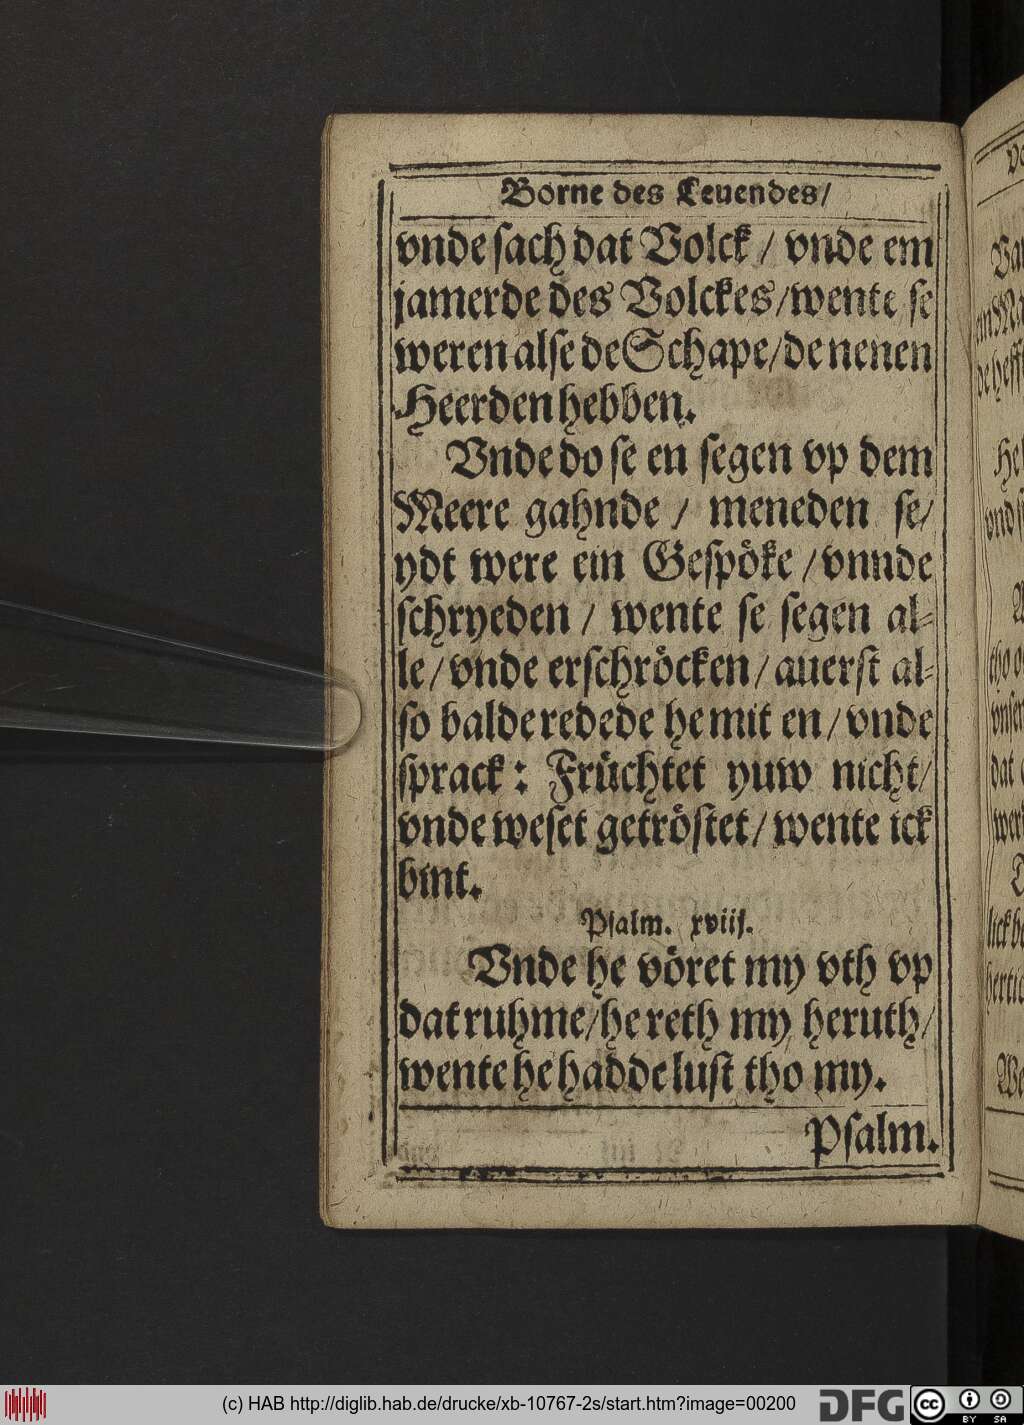 Borne des Leuendes/
vnde sach dat Volck / vnde em
jamerde des Volckes/wente se
weren alse de Schape/de nenen
Heerden hebben.
Vnde do se en segen vp dem
Meere gahnde / meneden se/
ydt were ein Gespöke /vnnde
schryeden / wente se segen al-
le/vnde erschröcken/auerst al-
so balde redede he mit en/vnde
sprack: Früchtet yuw nicht/
vnde weset getröstet/wente ick
bint.
Psalm. xviij.
Vnde he vöret my vth vp
dat ruhme/he reth my heruth/
wente he hadde lust tho my.
Psalm.
(c) HAB http://diglib.hab.de/drucke/xb-10767-2s/start.htm?image=00200
DFG
cc
BY SA